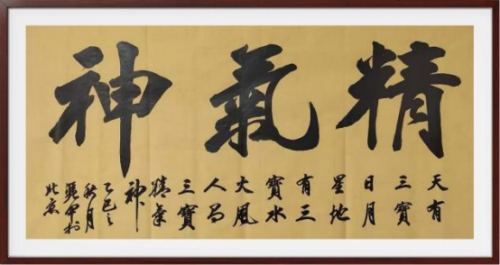 精氣神
天有
三寶
日月
星地
有三
寶水
火風
人有
三寶
精氣
神
乙巳之
秋月
北京